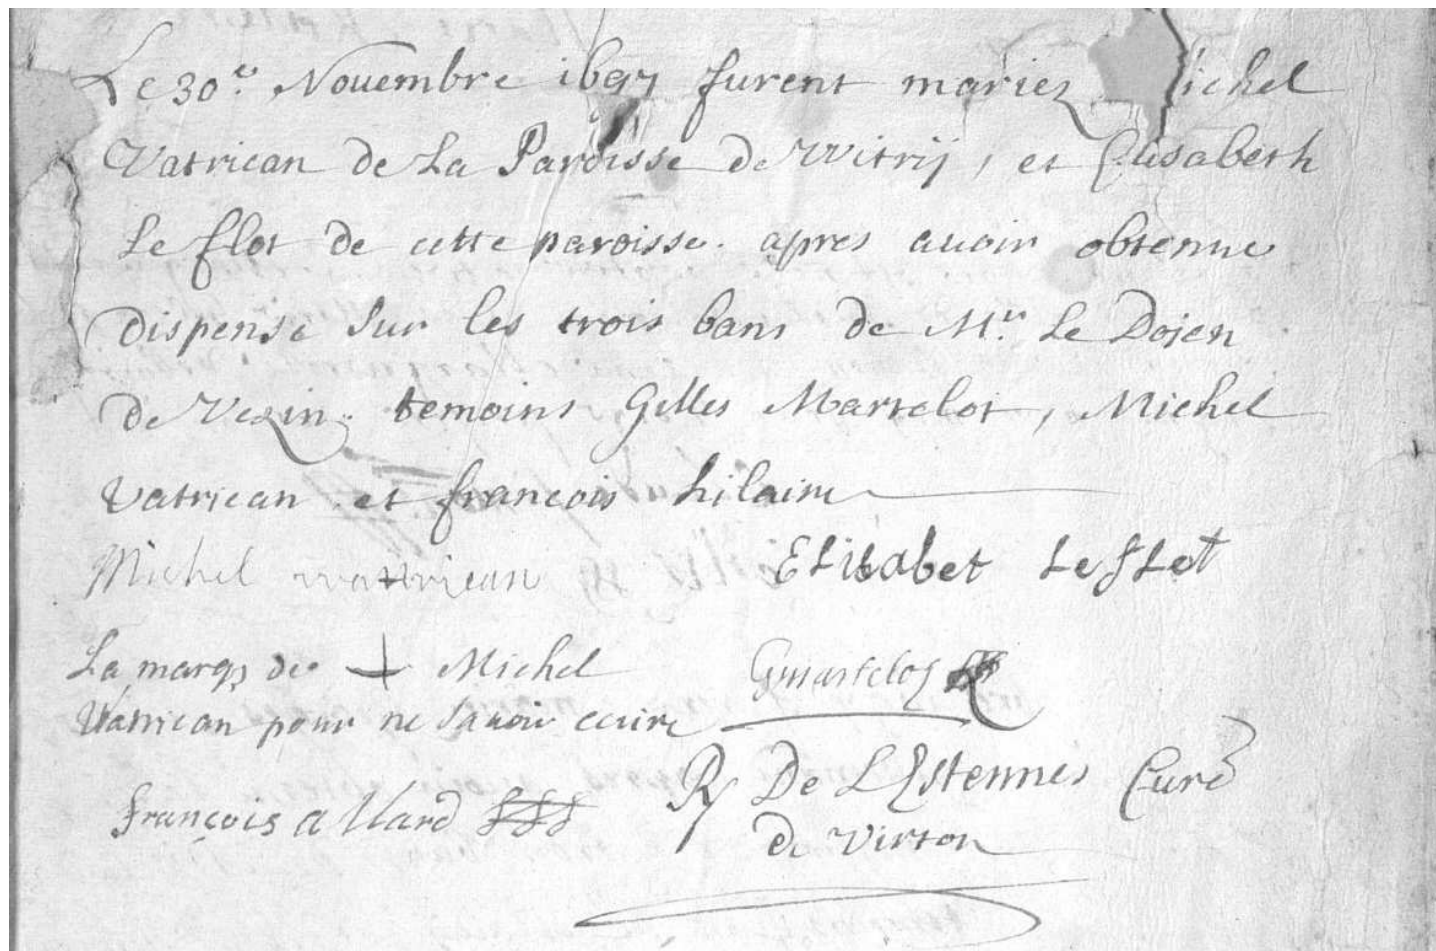 Le 30.e Nouembre 1697 furent mariez Michel
Vatrican de La Paroisse de VVitrij, et Elisabeth
Le flot de cette paroisse. apres auoir obtenue
dispense sur les trois bans de Mr. Le Doien
de Vezin. temoins Gilles Martelot, Michel
Vatrican et francois hilaire
Michel wattrican Elisabet Le fLot
La marq de + Michel
Vatrican pour ne sauoir ecrire
Gmartelot
françois allard
De LEstennes Curé
de Virton